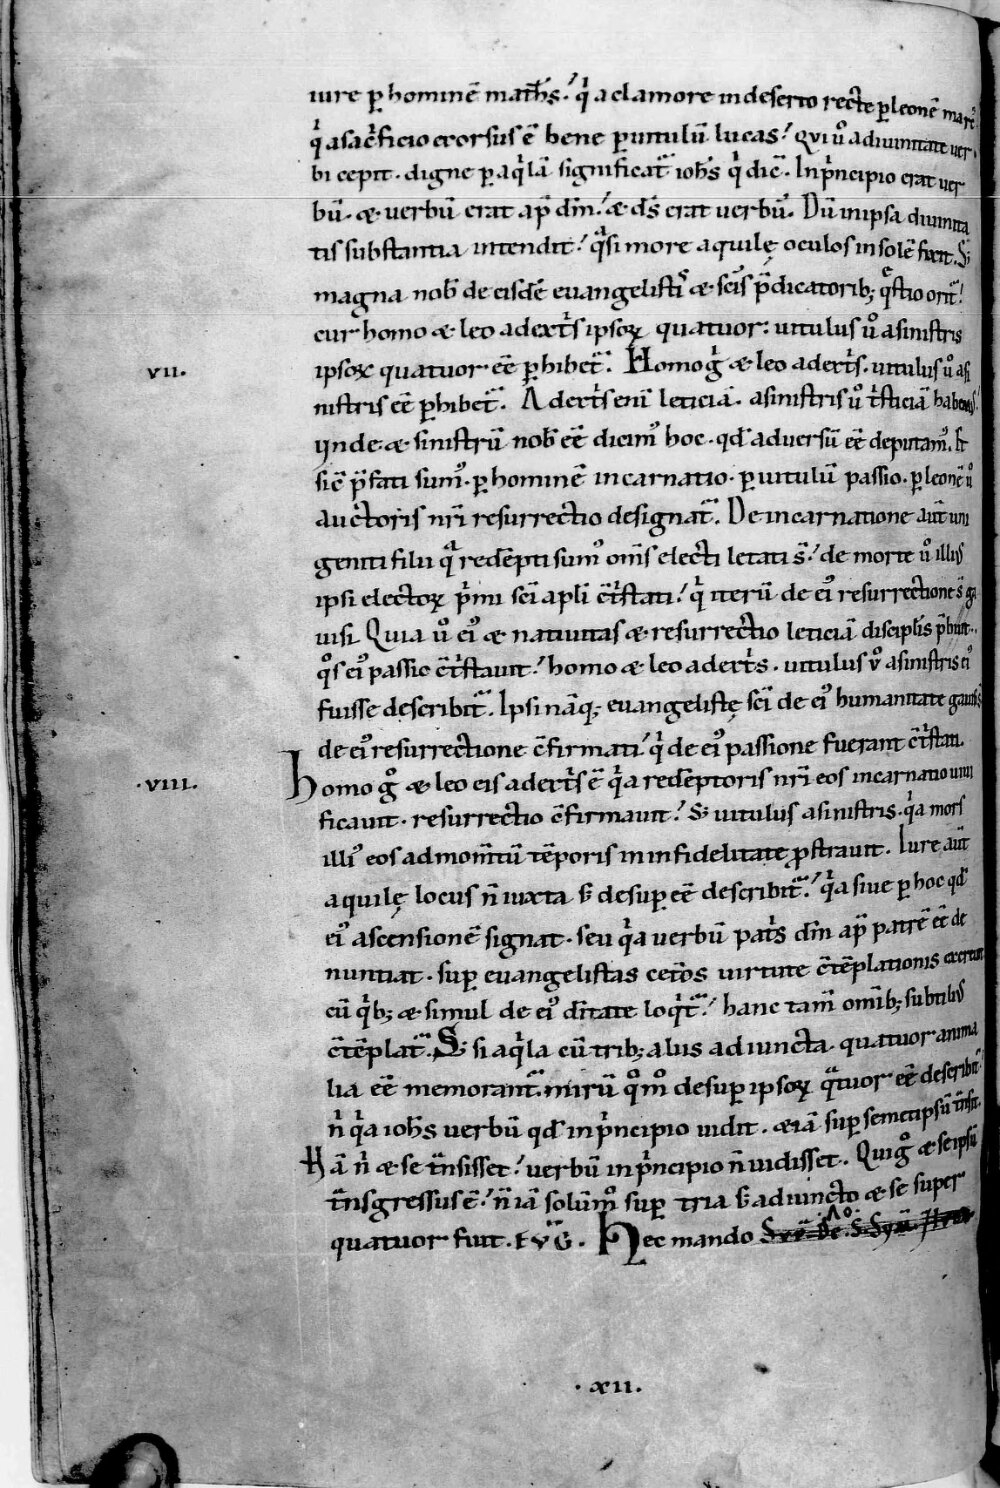 iure ꝑ hominē math̄s. q̓ a clamore in deserto recte ꝑ leonē marc᷒.
q̓ a sac̓ficio exorsus ē bene ꝑ uitulū lucas. Qui u̓o a diuinitate uer
bi cepit. digne ꝑ aq̓lā significat̄ ioh̄s q̓ dic̄. In p̓ncipio erat uer
bū. & uerbū erat ap̄ dm̄. & d̄s erat uerbū. Dū in ipsa diuinita
tis substantia intendit. q̓si more aquilę oculos in solē fixit. S;
magna nob̄ de eisdē euangelistis & sc̄is p̄dicatorib; q̄stio orit̄.
cur homo & leo a dext̓s ipsoꝝ quatuor: uitulus u̓o a sinistris
vii.
ipsoꝝ quatuor eē ꝑhibet̄. Homo g̓ & leo a dext̓s. uitulus u̓o a si
nistris eē ꝑhibet̄. A dext̓s eni leticiā. a sinistris u̓o t̓sticiā habem᷒.
Unde & sinistrū nob̄ eē dicim᷒ hoc. qđ aduersū eē deputam᷒. S;
sic̄ p̄fati sum᷒. ꝑ hominē incarnatio. ꝑ uitulū passio. ꝑ leonē u̓o
auctoris nr̄i resurrectio designat̄. De incarnatione aūt uni
geniti filii q̓a redēpti sum᷒ om̄s electi letati s̄. de morte u̓o illi᷒
ipsi electoꝝ p̓mi sc̄i apl̄i c̄t̓stati. q̓ iterū de ei᷒ resurrectione s̄ ga
uisi. Quia u̓o ei᷒ & natiuitas & resurrectio leticiā discipl̓is p̄buit.
q̓s ei᷒ passio c̄t̓stauit. homo & leo a dext̓s. uitulus u̓o a sinistris ei᷒
fuisse describit̄. Ipsi nāq; euangelistę sc̄i de ei᷒ humanitate gauisi s̄
de ei᷒ resurrectione c̄firmati q̓ de ei᷒ passione fuerant c̄t̓stati.
.viii.
Homo g̊ & leo eis a dext̓s ē q̓a redēptoris nr̄i eos incarnatio uiui
ficauit. resurrectio c̄firmauit. S; uitulus a sinistris. q̓a mors
illi᷒ eos ad mom̄tū tēporis in infidelitate ꝓstrauit. Iure aūt
aquilę locus n̄ iuxta s; desuꝑ eē describit̄. q̓a siue ꝑ hoc qđ
ei᷒ ascensionē signat. seu q̓a uerbū pat̓s dm̄ ap̄ patrē eē de
nuntiat. suꝑ euangelistas cet̓os uirtute c̄tēplationis excreuit.
cū q̓b; & simul de ei᷒ d̄itate loq̓t̄. hanc tam̄ om̄ib; subtili᷒
c̄tēplat̄. S; si aq̓la cū trib; aliis adiuncta. quatuor anima
lia eē memorant̄. mirū q̊m̊ desuꝑ ipsoꝝ q̓tuor eē describit̄.
n̓ q̓a ioh̄s uerbū qđ in p̓ncipio uidit. & iā suꝑ semetipsū t̄nsiit.
Nā n̓ & se t̄nsisset. uerbū in p̓ncipio n̄ uidisset. Qui g̊ & seipsū
t̄nsgressus ē. n̄ iā solūm̊ suꝑ tria s; adiuncto & se super
quatuor fuit. EVG̅. Hec mando
.xii.